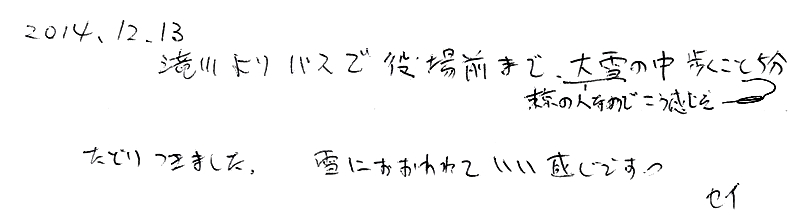 2014.12.13
滝川よりバスで役場前まで、大雪の中歩くこと5分
東京の人なのでこう感じる
たどりつきました。 雪におおわれていい感じです。
セイ